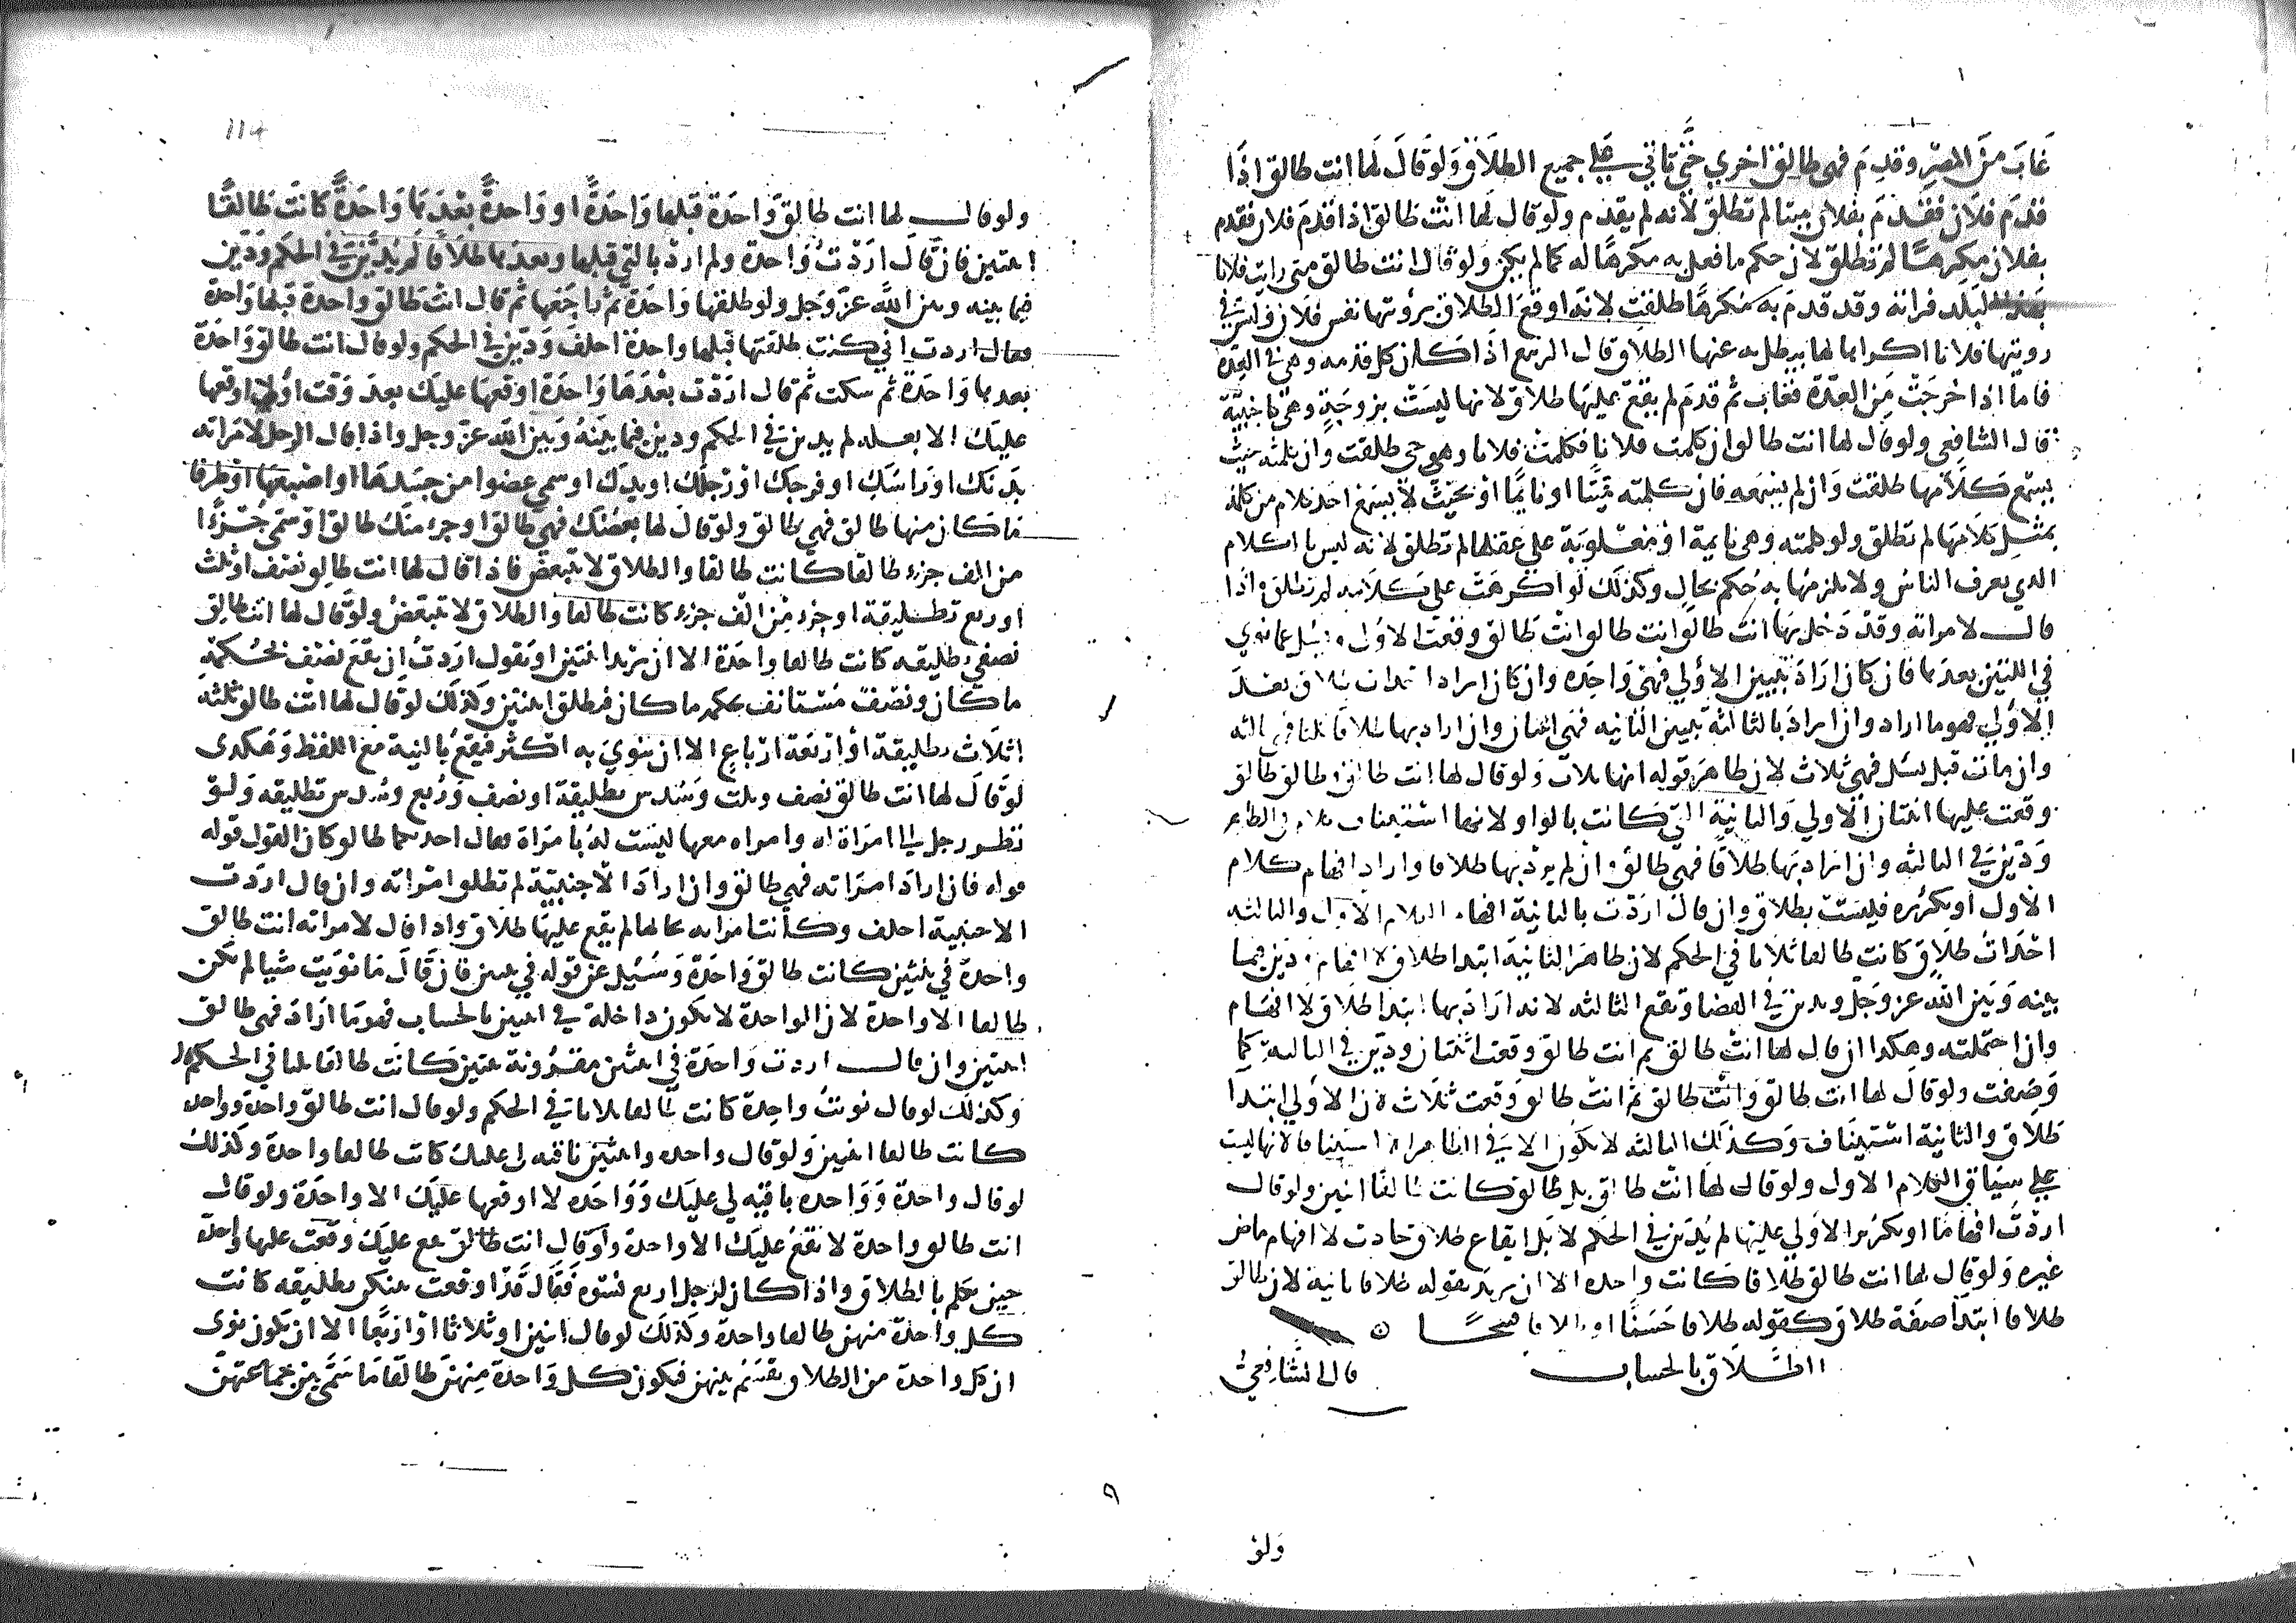 غَابَ منَ المصْرِ وقدِمَ فهي طالق اخري حَتَّي تاتي عَلي جميع الطلَاق وَلوْ قالَ لَهَا انت طالق اذَا
قدمَ فلَان فقدمَ بفلان ميتا لم تطلق لأنه لم يقدم ولوْ قال لها انْت طالق اذا قدمَ فلان فقدم
بفلان مكرهًا لم تطلق لان حكم ما فعل به مكرهًا له كما لم يكن ولوْ قال انت طالق متى رايت فلانا
البلد فراته وقد قدمَ به مكرهًا طلقت لانه اوقعَ الطلاق برؤيتها نفس فلان وليس في
رويتها فلانا اكراها لها يبطل به عنها الطلاق قال الربيع اذا كان كل قدمه وهي في العدة
فاما اذا خرجَتْ مِن العدّة فغاب ثم قدمَ لم يقع عليها طلاق لانها ليسَتْ بزوجَةٍ وهي كاجنبيَّة
قال الشافعي ولو قال لها انت طالق ان كلمت فلانا فكلمت فلانا وهو حي طلقت وان كلمته حيث
يسمع كلَامها طلقت وَان لم يسمعه فان كلمته ميّتًا او نايمًا اوْ بحَيْث لا يسمع احد كلام من كلمه
بمثْل كلَامهَا لم تطلق ولو كلمته وهي نايمة اوْ مغلوبَة علي عقلها لم تطلق لانه ليس بالكلام
الذي يعرف الناس ولا يلزمها به حُكم بحال وكذلك لو اكرهَتْ علي كلَامه لم تطلق واذا
قال لامراته وقدْ دَخل بها انت طالق انت طالق انت طالق وقعت الاوُلى ويسُل عما نوي
في اللتين بعدَها فان كانَ ارَادَ تبيين الاوُلي فهي وَاحِده وان كان اراد احداث طلاق بعدَ
الاوُلي فهو ما اراد وان ارادَ بالثالثة تبيين الثانيه فهي اثنتان وان اراد بها طلاقا ثالثا فهي ثالثه
وان ماتت قبل يسل فهي ثلاث لان ظاهرَ قوله انها ثلاث وَلو قال لها انت طالق وطالق طالق
وقعت عليها اثنتان الاولي وَالثانية التي كانت بالواو لانها استيناف كلام في الظاهر
وَديّن في الثالثه وان اراد بَها طلَاقًا فهي طالق وان لم يرد بها طلاقا واراد افهام كلام
الاول أو تكرُيره فليسَتْ بطلاق وان قال اردْت بالثانية افهام الكلام الاول والثالثه
احْدَاث طلاق كانت طالقا ثلاثا في الحكم لان ظاهرَ الثانية ابتدا طلاق لا افهام ودين فيما
بينه وَبَين الله عز وَجلّ ويدين في القضا وتقع الثالثه لانه ارَادَ بها ابتدا طلَاق لا افهَام
وان احتملته وهكذا ان قال لها انتْ طالق ثم انت طالق وقعت اثنتان وديّن في الثالثه كما
وَصفت ولوْ قالَ لها انت طالق وَانْت طالق ثم انتْ طالق وَقعت ثلَاث لان الاوُلي ابتدا
طلاق والثانية استينَاف وَكذلك الثالثه لا تكون الا في الظاهر استينافا لانها ليست
عَلي سيَاق الكلام الاول ولو قال لها انْت طالق بل طالق كانت طالقًا اثنين ولو قال
اردْت افهامًا او تكريرا الاوُلي عليها لم يُديَن في الحكم لا بَل ايقاع طلاق حادث لا افهام ماض
غيره وَلو قال لها انت طالق طلاقا كانت واحده الا ان يريد بقوله طلاقا ثانية لان طالق
طلاقا ابتدَا صفة طلاق كقوله طلاقا حَسَنًا او طلاقا قبيحًا ه
الطلَاق بالحساب قال الشَّافعيُّ
وَلوْ
114
ولو قال لها انت طالق وَاحدة قبلها وَاحدَةٌ او وَاحدةٌ بعْدَها وَاحدَةٌ كانتْ طَالقًا
اثنتين فان قال ارَدْت وَاحدة ولم ارد بالتي قبلها وبعدها طلَاقًا لَم يُدَيَّن في الحكم وَديّن
فيما بينه وبين الله عزّ وَجل ولو طلقها وَاحدَة ثمَّ راجَعَها ثم قال انْت طَالق واحدة قبلها وَاحدة
فقال اردت اني كنت طلقتها قبلها واحدة احلف وَديّن في الحكم ولوْ قال انت طالق وَاحدَة
بعدها وَاحدَةٌ ثم سكت ثم قال ارَدْت بعْدَهَا وَاحدَة اوقعها عليك بعدَ وَقت أو لا اوقعها
عليك الا بعده لم يدين في الحكم ودين فيما بينَهُ وَبَين الله عزّ وجل واذا قال الرجل لامراته
بدَنك اوْ رَاسَكِ او فرجك اوْ رِجلك او يدك او سمي عضوا من جسَدهَا او اصْبعها اوْ طرفا
مَا كان منها طالق فهي طالق ولوْ قالَ لها بعضُك فهي طالق او جزء منْك طالق اوْ سمّي جُزْءًا
من الف جزء طالقا كانت طالقا والطلاق لا يتبعض فاذا قال لها انت طالق نصْف او ثلث
او ربع تطليقة او جزء مِن الف جزء كانت طالقا والطلاق لا يتبعّض ولوْ قال لها انت طالق
نصفي تطليقه كانت طالقا واحدَة الا ان يريد اثنتين او يقول ارَدتُ ان يقعَ نصْف بحُكمهِ
ما كان ونصْف مُسْتانف بحكمه ما كان فتطلق اثنتين وكذلك لوْ قال لها انْت طالق ثلثه
اثلَاث تطليقة اوْ ارْبعَة ارْباع الا ان ينويَ به اكْثر فيقعُ بالنية معَ اللفظ وَهَكذى
لوْ قالَ لها انت طالق نصف وثلث وَسُدس تطليقة او نصف وَرُبع وسُدس تطليقه وَلوْ
نظر رجل الى امرَاة له وامراه معها ليسَت لهُ بامرَاة فقال احديكما طالق كان القول قوله
فان ارَادَ امرَاته فهي طالق وان ارادَ الأجنبيّة لم تطلق امْراته وان قال ارَدت
الاجنبية احلف وكانت امراته بحالها لم يقع عليها طلَاق واذا قال لامراته انت طالق
واحدةً في اثنتين كانت طالق وَاحدَةً وَسُئِل عن قوله في اثنتين فان قالَ مَا نوَيت شيا لم تكن
طالقا الا واحدة لان الواحدة لا يكون داخلة في اثنتين بالحساب فهوَ مَا ارَادَ فهي طالق
اثنتين وان قال اردت وَاحدَة في اثنتين مقرُونة بثنتين كانت طالقا ثلثا في الحكم
وَكذلك لو قال نويتُ واحدة كانت طالقا ثلاثا في الحكم ولو قال انت طالق واحدة وواحده
كانت طالقا اثنين وَلوْ قال واحده واثنتين باقيه لي عليك كانت طالقا واحدة وكذلك
لو قال واحدة وَوَاحده باقيه لي عليَك وَوَاحدَه لا اوقعها عليَك الا واحدَة ولو قال
انت طالق واحدة لا تقعُ عليَك الا واحدة وَلوْ قال انت طالق تقع عليَك وقعَت عليها واحدة
حين تكلم بالطلاق واذا كان لرجل اربع نسْوَه فقالَ قدْ اوقعت بينكن تطليقه كانت
كل واحدة منهن طالقا واحدة وكذلك لو قال اثنين او ثلاثا اوْ اربَعًا الا ان يكون نوى
ان كل واحدة من الطلاق تقسَم بينهن فيكون كل وَاحدة مِنهنَّ طالقًا مَا سَمَّي بين جَمَاعَتهنَّ